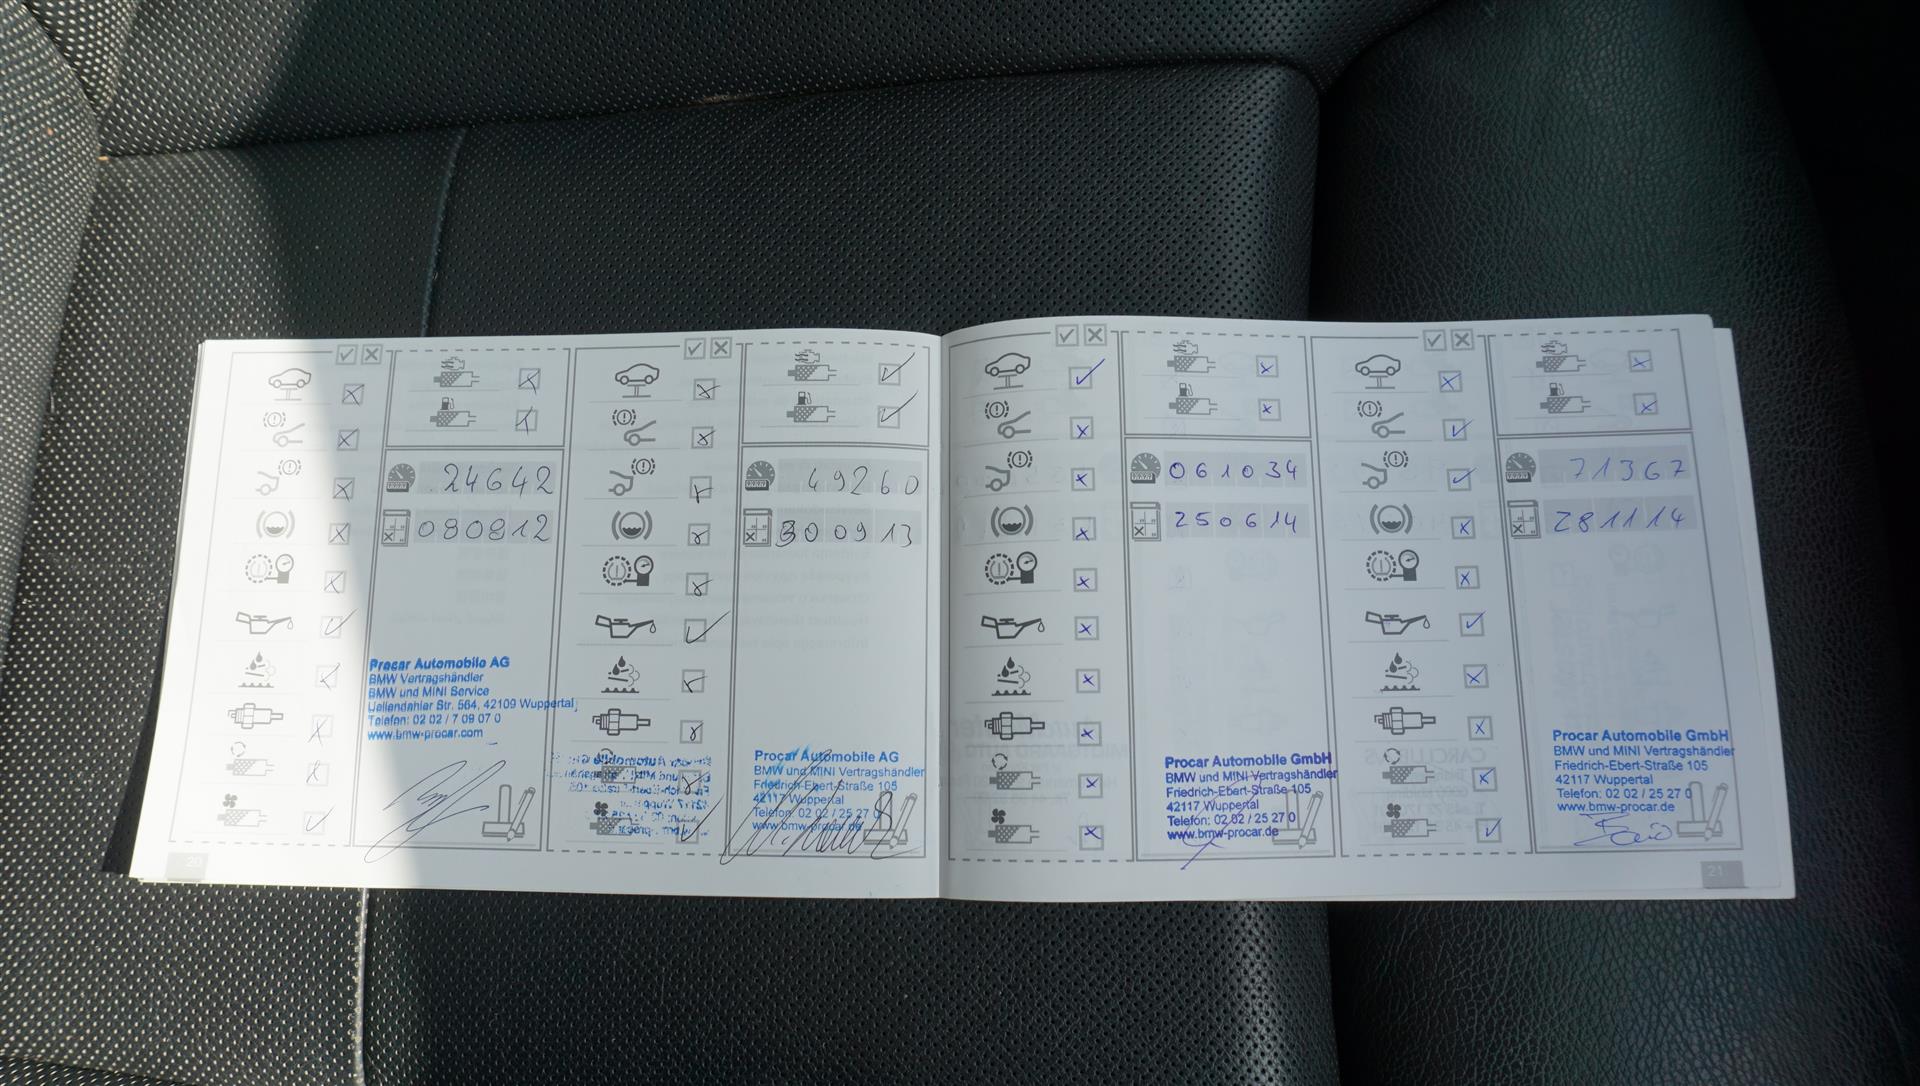 24642
080812
Procar Automobile AG
BMW Vertragshändler
BMW und MINI Service
Uellendahler Str. 564, 42109 Wuppertal
Telefon: 02 02 / 7 09 07 0
www.bmw-procar.com
20
49260
300913
Procar Automobile AG
BMW und MINI Vertragshändler
Friedrich-Ebert-Straße 105
42117 Wuppertal
Telefon: 02 02 / 25 27 0
www.bmw-procar.de
061034
250614
Procar Automobile GmbH
BMW und MINI Vertragshändler
Friedrich-Ebert-Straße 105
42117 Wuppertal
Telefon: 02 02 / 25 27 0
www.bmw-procar.de
71367
281114
Procar Automobile GmbH
BMW und MINI Vertragshändler
Friedrich-Ebert-Straße 105
42117 Wuppertal
Telefon: 02 02 / 25 27 0
www.bmw-procar.de
21